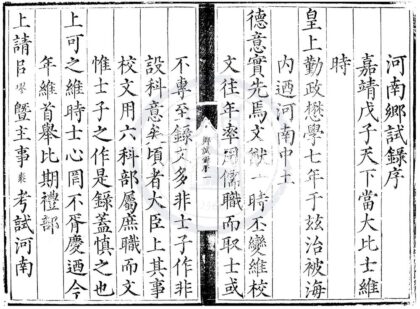 河南鄉試錄序
嘉靖戊子天下當大比士維
時
皇上勤政懋學七年于玆治被海
內迺河南中土
德意實先焉文猷一時丕變維校
文往年率用儒職而取士或
鄉試前序 一
不專至錄文多非士子作非
設科意矣頃者大臣上其事
校文用六科部屬庶職而文
惟士子之作是錄蓋慎之也
上可之維時士心罔不胥慶迺今
年維首舉比期禮部
上請臣 暨主事 考試河南